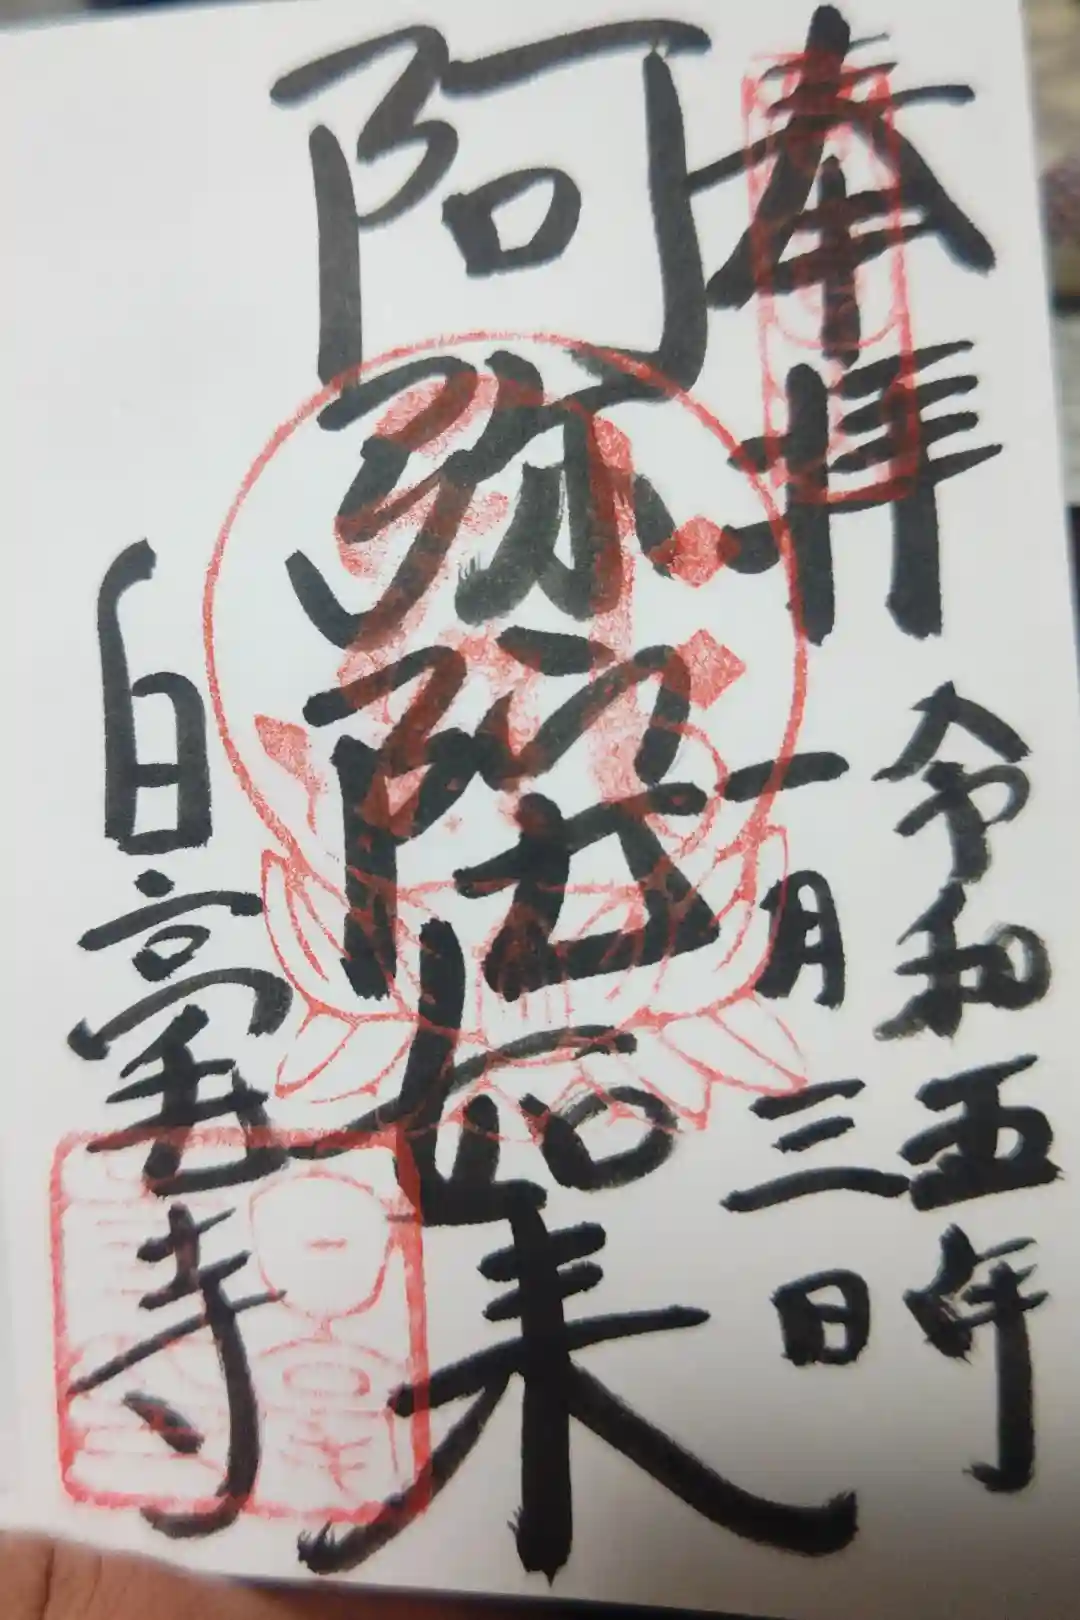 奉拝
令和五年
一月三日
阿弥陀如来
白毫寺